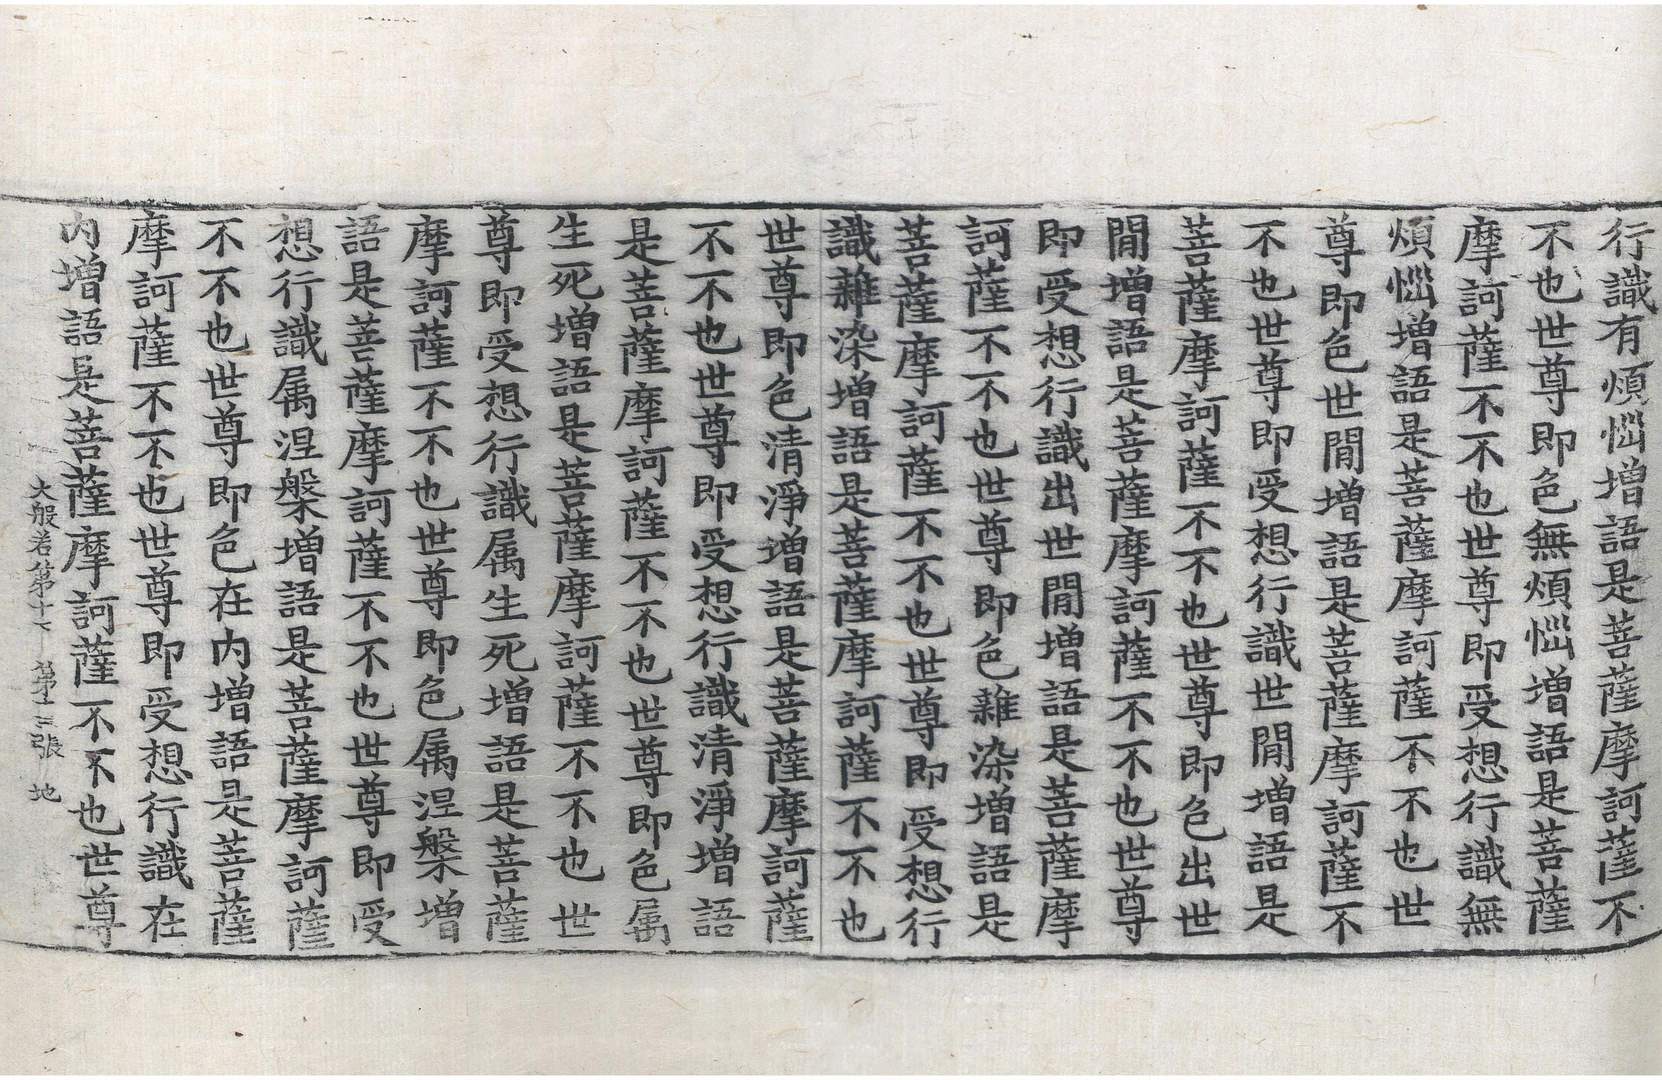 行識有煩惱增語是菩薩摩訶薩不
不也世尊即色無煩惱增語是菩薩
摩訶薩不不也世尊即受想行識無
煩惱增語是菩薩摩訶薩不不也世
尊即色世閒增語是菩薩摩訶薩不
不也世尊即受想行識世閒增語是
菩薩摩訶薩不不也世尊即色出世
閒增語是菩薩摩訶薩不不也世尊
即受想行識出世閒增語是菩薩摩
訶薩不不也世尊即色雜染增語是
菩薩摩訶薩不不也世尊即受想行
識雜染增語是菩薩摩訶薩不不也
世尊即色清淨增語是菩薩摩訶薩
不不也世尊即受想行識清淨增語
是菩薩摩訶薩不不也世尊即色属
生死增語是菩薩摩訶薩不不也世
尊即受想行識属生死增語是菩薩
摩訶薩不不也世尊即色属涅槃增
語是菩薩摩訶薩不不也世尊即受
想行識属涅槃增語是菩薩摩訶薩
不不也世尊即色在内增語是菩薩
摩訶薩不不也世尊即受想行識在
内增語是菩薩摩訶薩不不也世尊
大般若第十 第十三張 地